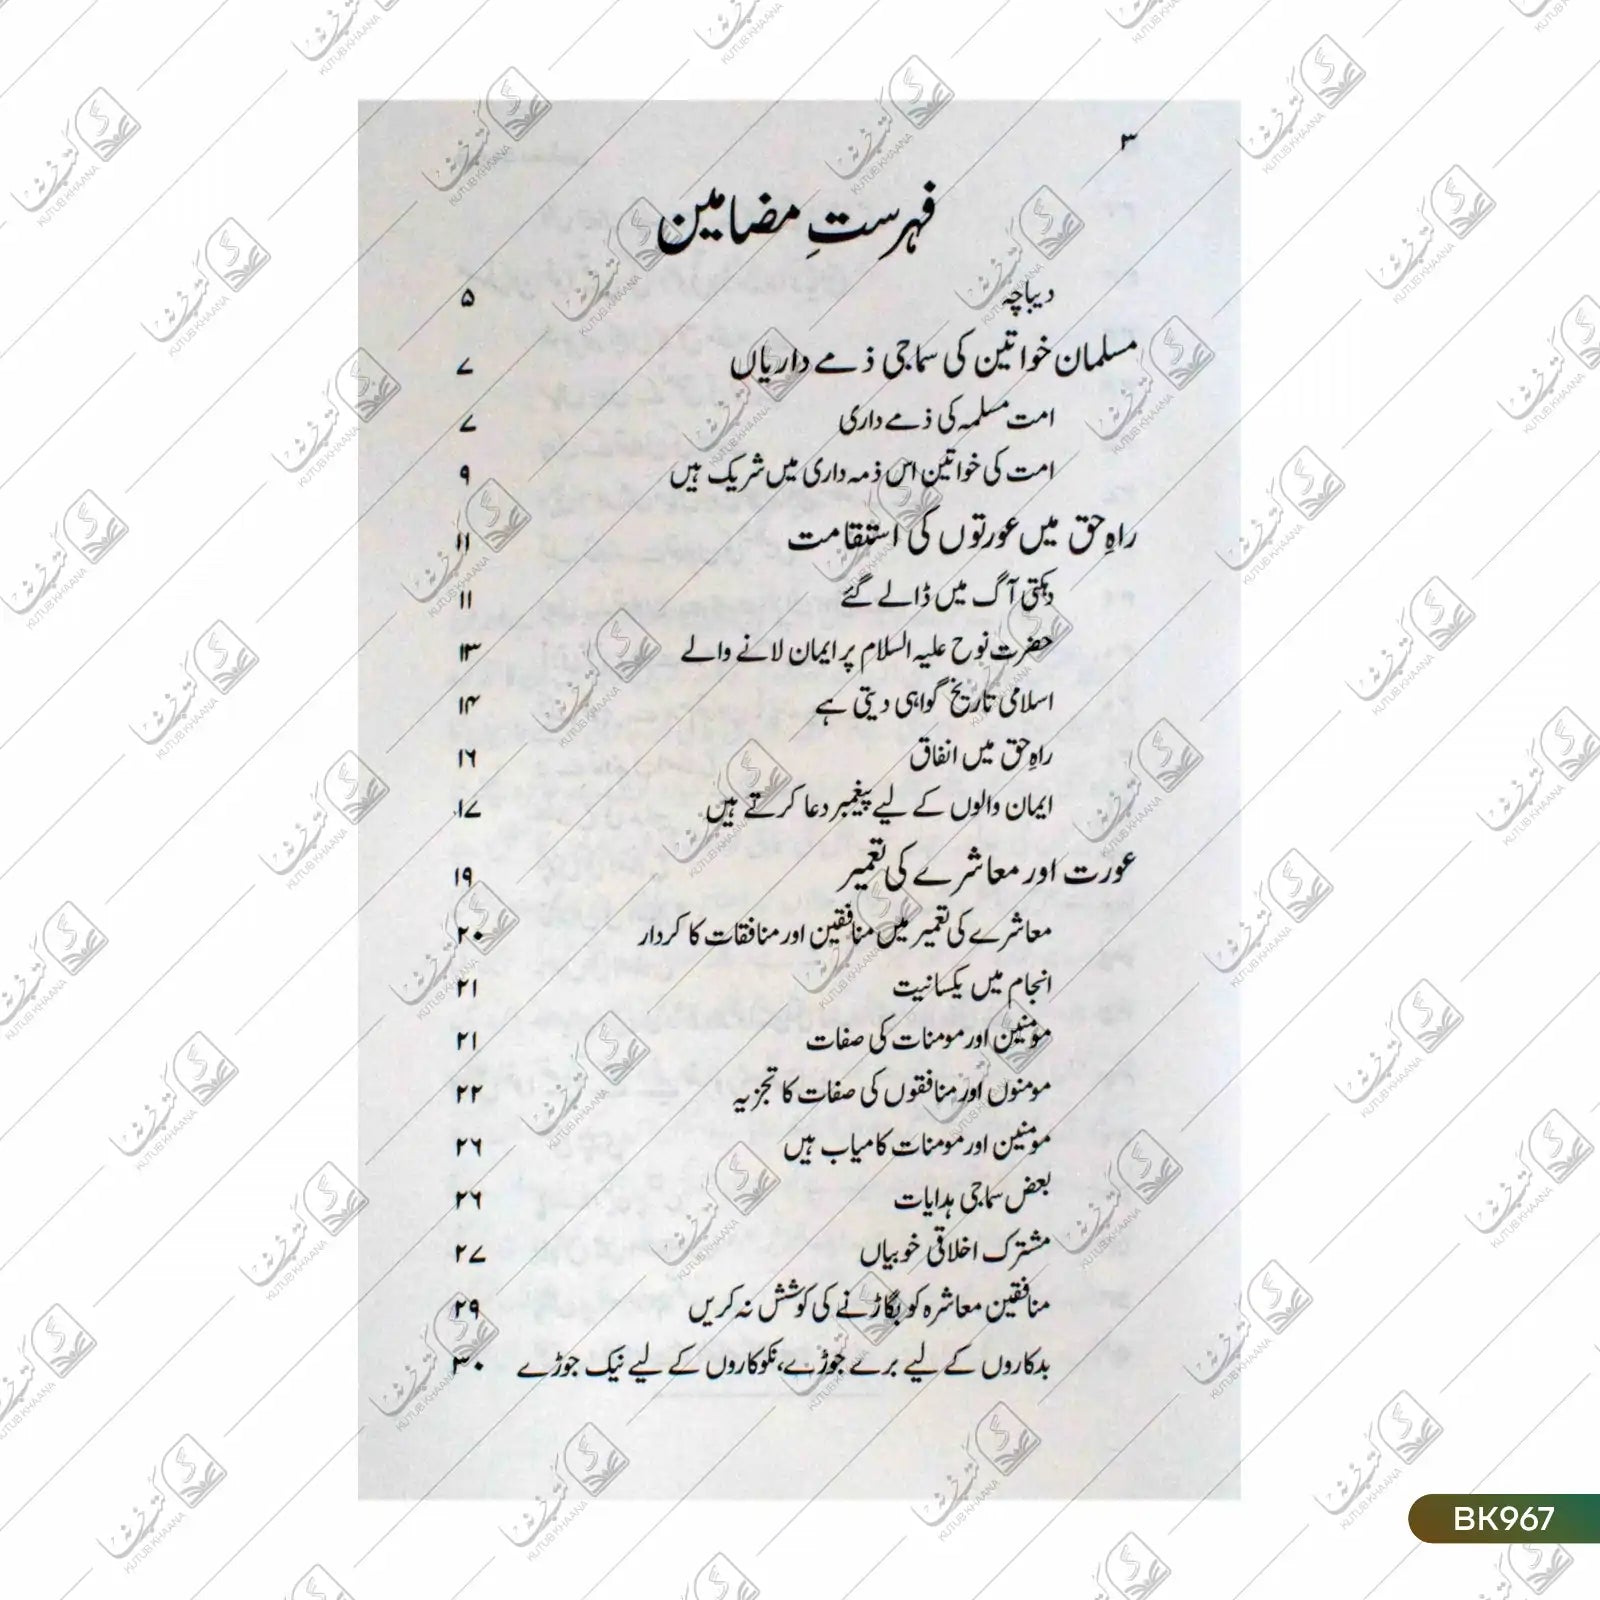 ۳
فہرستِ مضامین
دیباچہ ۵
مسلمان خواتین کی سماجی ذمے داریاں ۷
امت مسلمہ کی ذمے داری ۷
امت کی خواتین اس ذمہ داری میں شریک ہیں ۹
راہِ حق میں عورتوں کی استقامت ۱۱
دہکتی آگ میں ڈالے گئے ۱۱
حضرت نوح علیہ السلام پر ایمان لانے والے ۱۳
اسلامی تاریخ گواہی دیتی ہے ۱۴
راہِ حق میں انفاق ۱۶
ایمان والوں کے لیے پیغمبر دعا کرتے ہیں ۱۷
عورت اور معاشرے کی تعمیر ۱۹
معاشرے کی تعمیر میں منافقین اور منافقات کا کردار ۲۰
انجام میں یکسانیت ۲۱
مومنین اور مومنات کی صفات ۲۱
مومنوں اور منافقوں کی صفات کا تجزیہ ۲۲
مومنین اور مومنات کامیاب ہیں ۲۶
بعض سماجی ہدایات ۲۶
مشترک اخلاقی خوبیاں ۲۷
منافقین معاشرہ کو بگاڑنے کی کوشش نہ کریں ۲۹
بدکاروں کے لیے برے جوڑے، نکوکاروں کے لیے نیک جوڑے ۳۰
BK967
KUTUB KHAANA